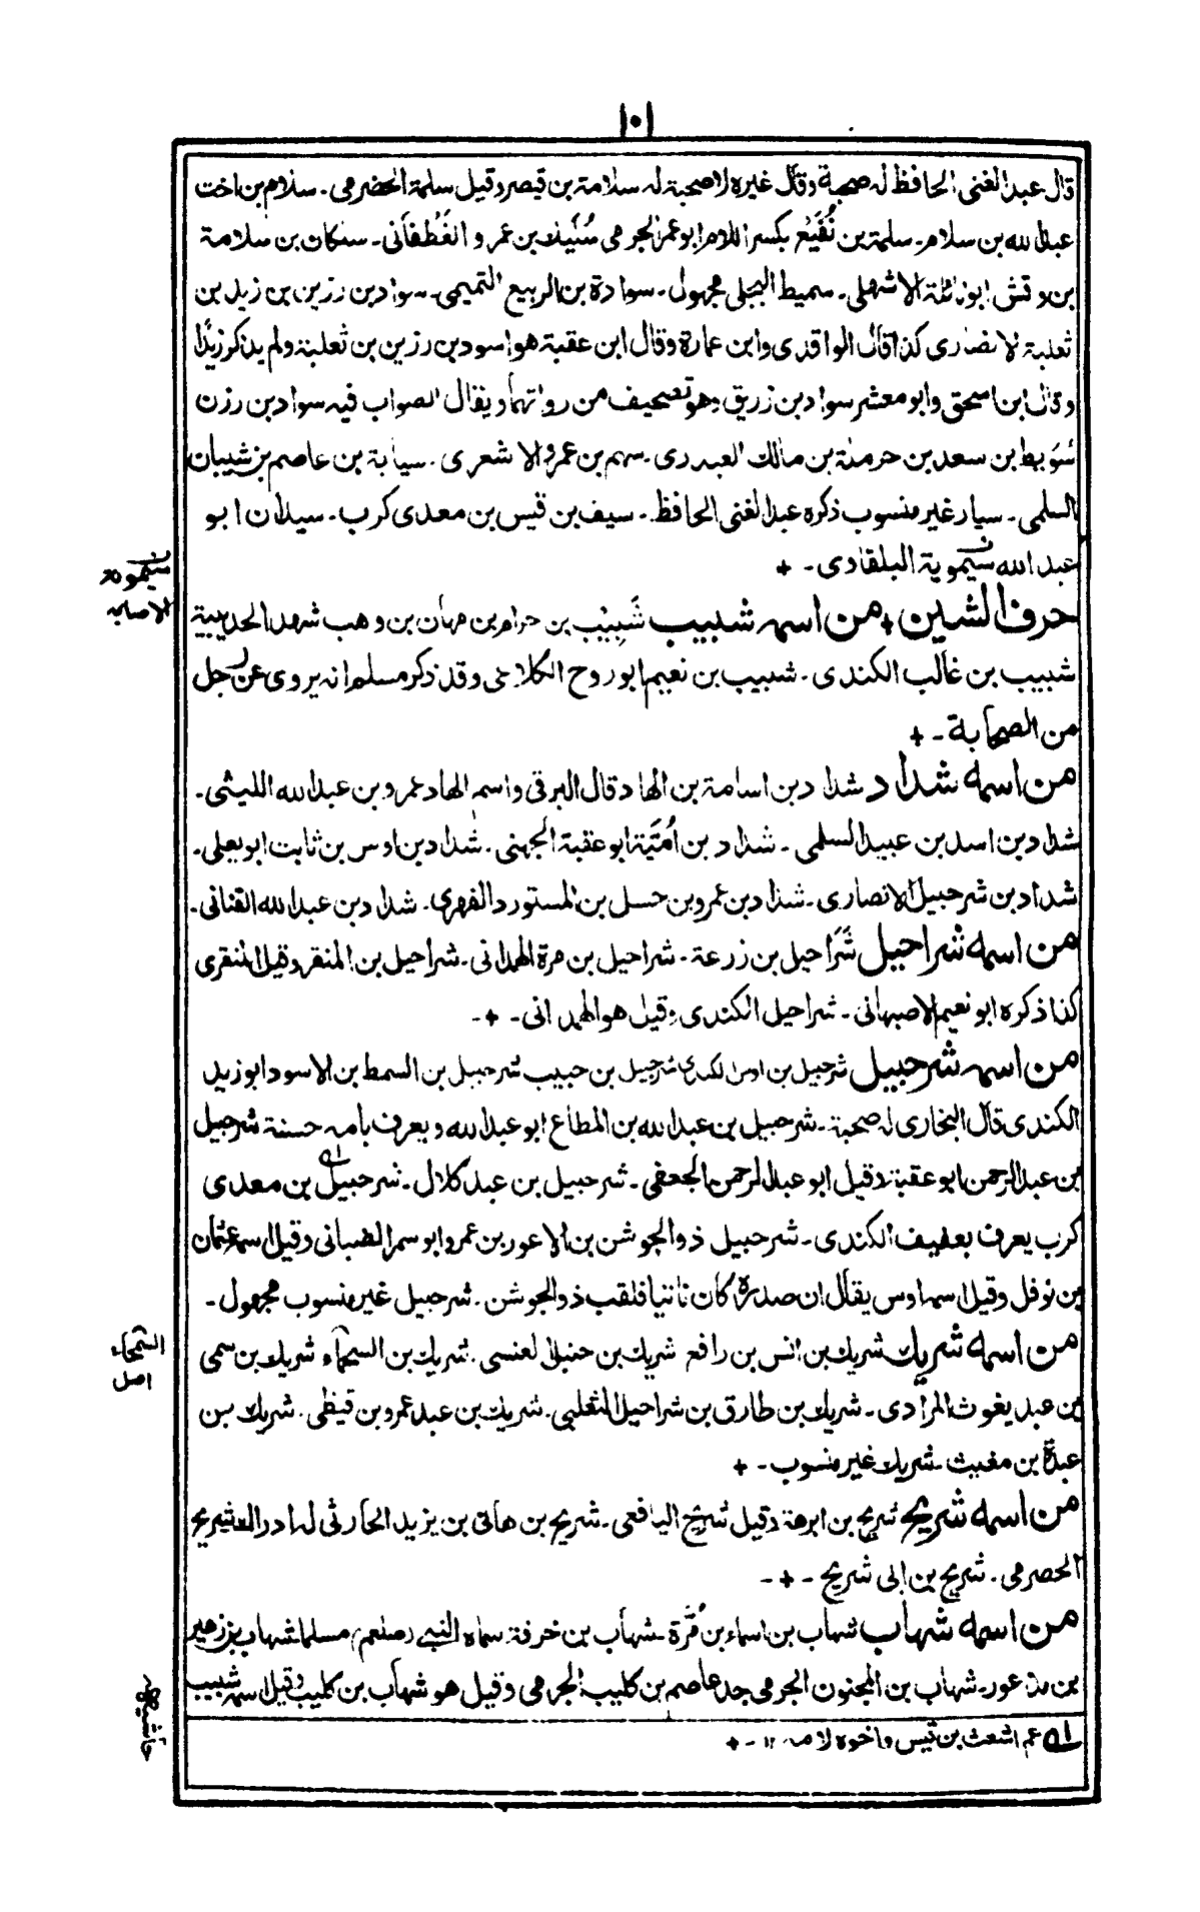 ١٠١
قال عبد الغنى الحافظ له صحبة وقال غيره لا صحبة له سلامة بن قيصر وقيل سلمة الحضرمى ـ سلام بن اخت
عبد الله بن سلام ـ سلمة بن نُفَيْع بكسر اللام ابو عمر الجرمى سُلَيك بن عمرو الغَطْفانى ـ سلكان بن سلامة
بن وقش ابو نائلة الاشهلى ـ سميط البجلى مجهول ـ سوادة بن الربيع التميمى ـ سواد بن رزين بن زيد بن
ثعلبة الانصارى كذا قال الواقدى وابن عمارة وقال ابن عقبة هو اسود بن رزين بن ثعلبة ولم يذكر زيدًا
وقال ابن اسحق وابو معشر سواد بن زريق وهو تصحيف من رواتهما ويقال الصواب فيه سواد بن رزن
سُوَيبط بن سعد بن حرملة بن مالك العبدرى ـ سهم بن عمرو الاشعرى ـ سيابة بن عاصم بن شيبان
السلمى ـ سيار غير منسوب ذكره عبد الغنى الحافظ ـ سيف بن قيس بن معدى كرب ـ سيدان ابو
عبد الله سيمویة البلقادى ـ +
سيمونه
الاصابه
حرف الشين + من اسمه شبيب شَبِيْب بن حرام بن مهان بن وهب شهد الحديبية
شبيب بن غالب الكندى ـ شبيب بن نعيم ابو روح الكلاعى وقد ذكر مسلم انه يروى عن رجل
من الصحابة ـ +
من اسمه شداد شداد بن اسامة بن الهاد قال البرقى واسم الهاد عمرو بن عبد الله الليثى ـ
شداد بن اسد بن عبيد السلمى ـ شداد بن اُمَيَّة ابو عقبة الجهنى ـ شداد بن اوس بن ثابت ابو يعلى ـ
شداد بن شرحبيل الانصارى ـ شداد بن عمرو بن حسل بن المستورد الفهرى ـ شداد بن عبد الله القنانى ـ
من اسمه شراحيل شَرَاحيل بن زرعة ـ شراحيل بن مرة الهمدانى ـ شراحيل بن المنقر وقيل المنقرى
كذا ذكره ابو نعيم الاصبهانى ـ شراحيل الكندى وقيل هو الهمدانى ـ + ـ
من اسمه شرحبيل شرحبيل بن اوس الكندى شرحبيل بن حبيب شرحبيل بن السمط بن الاسود ابو زيد
الكندى قال البخارى له صحبة ـ شرحبيل بن عبد الله بن المطاع ابو عبد الله ويعرف بامه حسنة شرحبيل
بن عبد الرحمن ابو عقبة وقيل ابو عبد الرحمن الجعفى ـ شرحبيل بن عبد كلال ـ شرحبيل بن معدى
كرب يعرف بعفيف الكندى ـ شرحبيل ذو الجوشن بن الاعور بن عمرو ابو سمر الضبابى وقيل اسمه عثمان
بن نوفل وقيل اسمه اوس يقال ان صدره كان ناتيا فلقب ذو الجوشن ـ شرحبيل غير منسوب مجهول ـ
من اسمه شريك شريك بن انس بن رافع شريك بن حنبل العنسى ـ شريك بن السحماء شريك بن سمى
السحماء
اصل
بن عبد يغوث المرادى ـ شريك بن طارق بن شراحيل الثعلبى ـ شريك بن عبد عمرو بن قيظى ـ شريك بن
عبدة بن مغيث ـ شريك غير منسوب ـ +
من اسمه شريح شريح بن ابرهة وقيل شريح اليافعى ـ شريح بن هانى بن يزيد الحارثى له ادراك شريح
الحضرمى ـ شريح بن ابى شريح ـ + ـ
من اسمه شهاب شهاب بن اسماء بن مُرَّة ـ شهاب بن خرفة سماه النبى (صلعم) مسلما شهاب بن زهير
بن مذعور ـ شهاب بن المجنون الجرمى جد عاصم بن كليب الجرمى وقيل هو شهاب بن كليب وقيل اسمه شبيب
حاشية
عم اشعث بن قيس واخوه لامه ١٢ ـ +